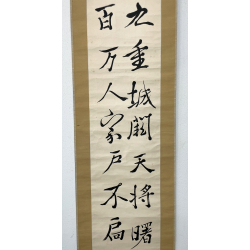 九重城闕天将曙
百万人家戸不扃